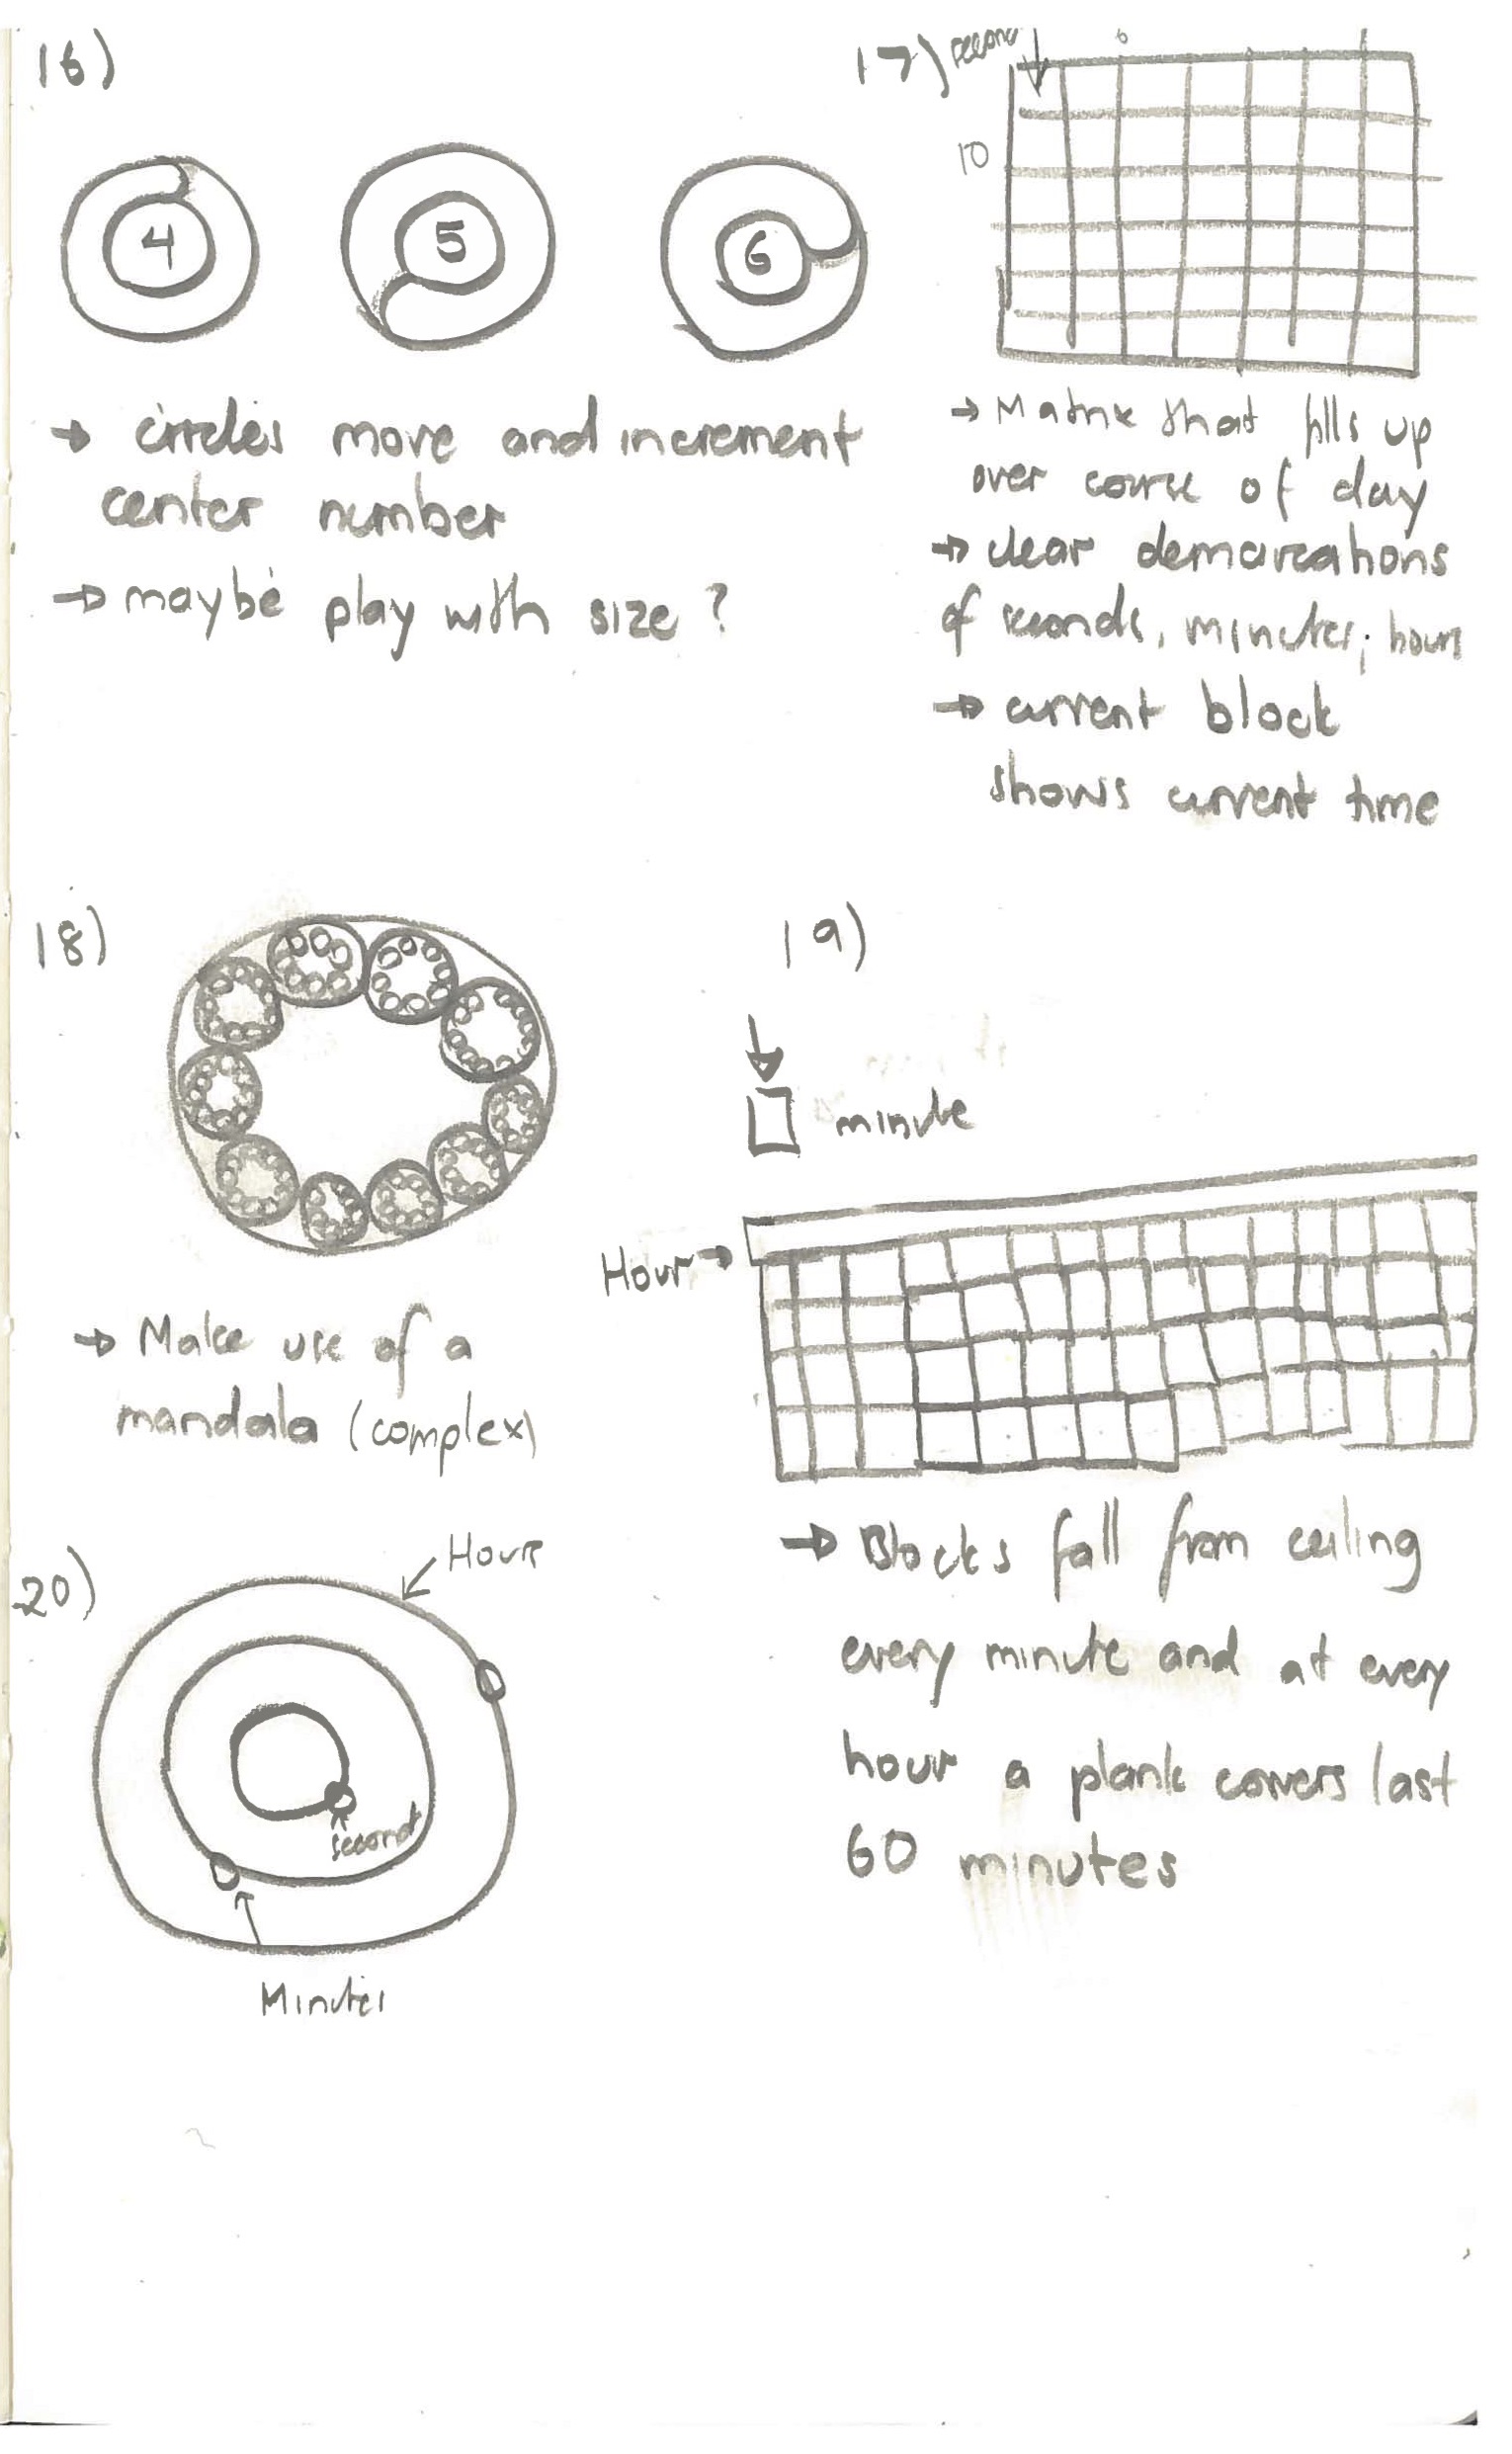 16)
4
5
6
→ circles move and increment
center number
→ maybe play with size ?
17) second
10
→ Matrix that fills up
over course of day
→ clear demarcations
of seconds, minutes, hours
→ current block
shows current time
18)
→ Make use of a
mandala (complex)
19)
minute
Hour →
→ Blocks fall from ceiling
every minute and at every
hour a plank covers last
60 minutes
20)
Hour
second
Minutes